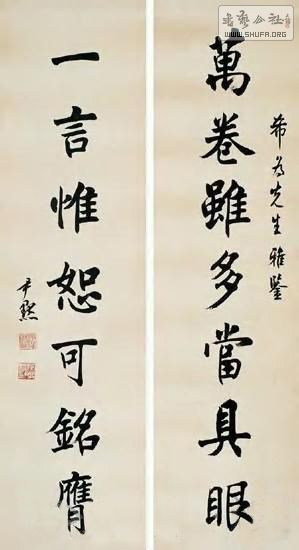 書藝公社
WWW.SHUFA.ORG
希為先生雅鑒
萬卷雖多當具眼
一言惟恕可銘膺
尹默